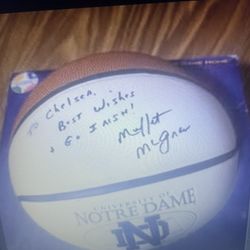 To Chelsea,
Best Wishes
+ Go Irish!
Muffet
McGraw
UNIVERSITY OF
NOTRE DAME
ND